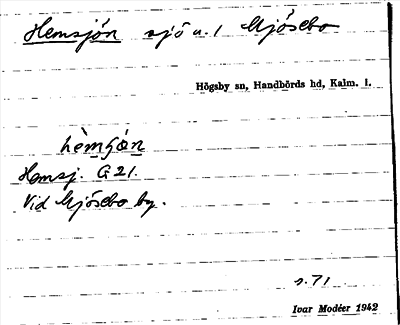 Hemsjön sjö u. 1 Mjösebo
Högsby sn, Handbörds hd, Kalm. l.
hèmʃön
Hemsj. G 21.
Vid Mjösebo by.
s. 71
Ivar Modéer 1942